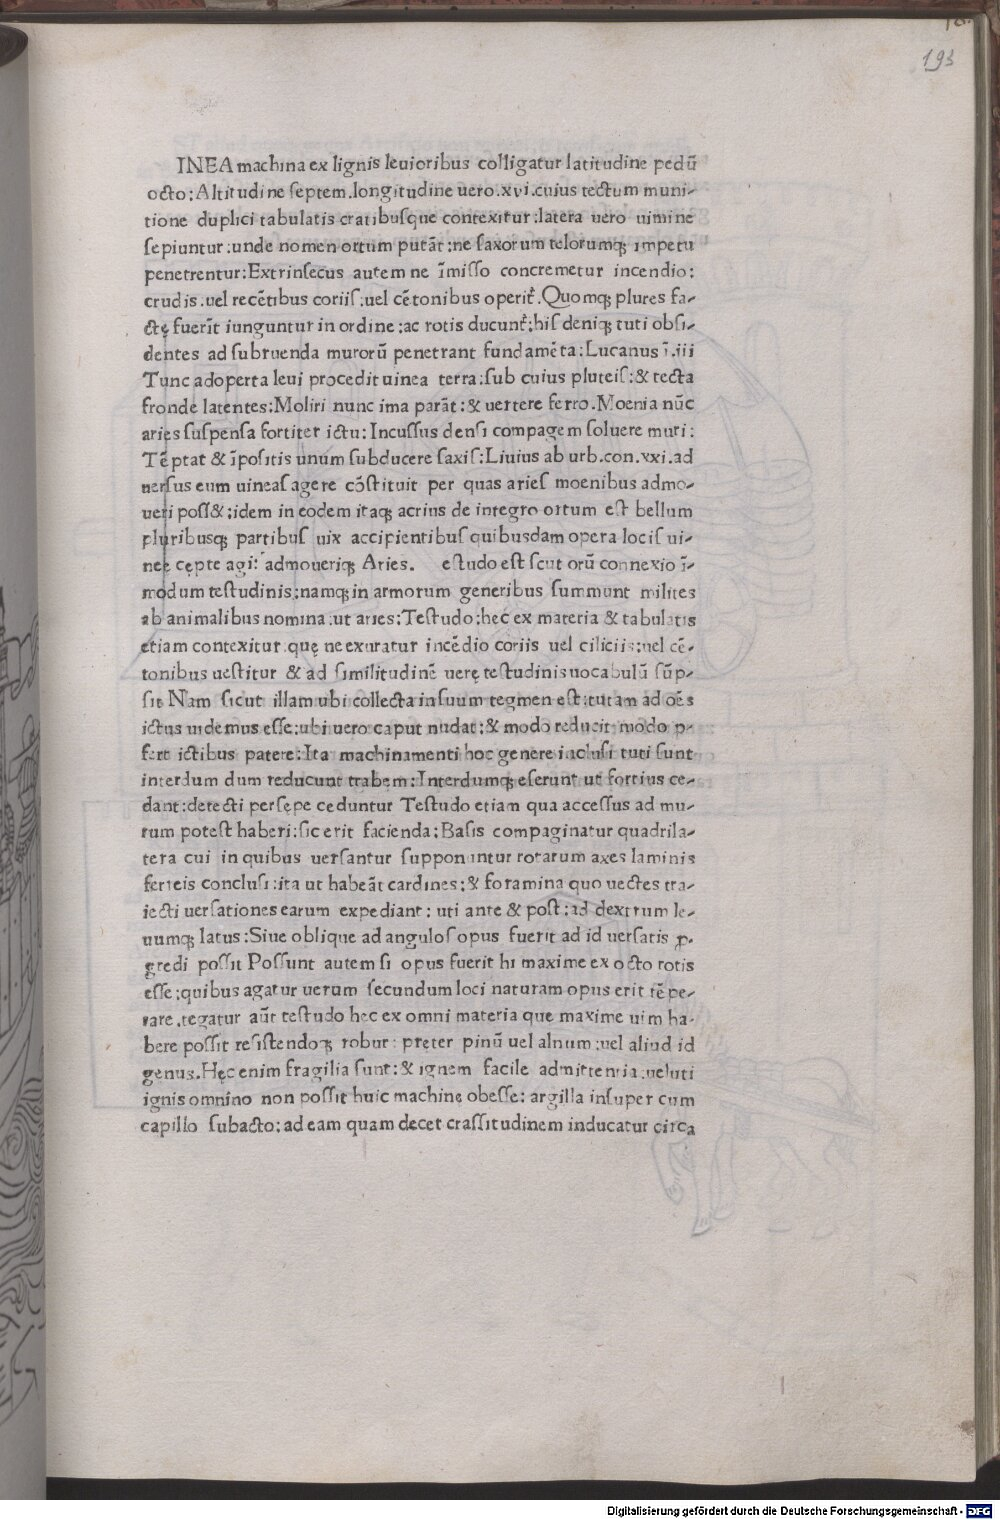 193
INEA machina ex lignis leuioribus colligatur latitudine pedū
octo: Altitudine septem. longitudine uero. xvi. cuius tectum muni-
tione duplici tabulatis cratibusque contexitur: latera uero uimine
sepiuntur: unde nomen ortum putāt: ne saxorum telorumqꝫ impetu
penetrentur: Extrinsecus autem ne īmisso concremetur incendio:
crudis. uel recētibus coriis: uel cētonibus operit᷑. Quomqꝫ plures fa-
ctę fuerīt iunguntur in ordine: ac rotis ducunt᷑: his deniqꝫ tuti obsi-
dentes ad subruenda murorū penetrant fundamēta: Lucanus ī. iii
Tunc adoperta leui procedit uinea terra: sub cuius pluteis: & tecta
fronde latentes: Moliri nunc ima parāt: & uertere ferro. Moenia nūc
aries suspensa fortiter ictu: Incussus densi compagem soluere muri:
Tēptat & īpositis unum subducere saxis: Liuius ab urb. con. xxi. ad
uersus eum uineas agere cōstituit per quas aries moenibus admo-
ueri poss&: idem in eodem itaqꝫ acrius de integro ortum est bellum
pluribusqꝫ partibus uix accipientibus quibusdam opera locis ui-
neę cępte agi: admoueriqꝫ Aries. estudo est scutorū connexio ī-
modum testudinis: namqꝫ in armorum generibus summunt milites
ab animalibus nomina. ut aries: Testudo: hec ex materia & tabulatis
etiam contexitur. quę ne exuratur incēdio coriis uel ciliciis: uel cē-
tonibus uestitur & ad similitudinē uerę testudinis uocabulū sūp-
sit Nam sicut illam ubi collecta in suum tegmen est: tutam ad oēs
ictus uidemus esse: ubi uero caput nudat: & modo reducit modo p-
fert ictibus patere: Ita machinamenti hoc genere inclusi tuti sunt
interdum dum reducunt trabem: Interdumqꝫ eserunt ut fortius ce-
dant: detecti persępe ceduntur Testudo etiam qua accessus ad mu-
rum potest haberi: sic erit facienda: Basis compaginatur quadrila-
tera cui in quibus uersantur supponuntur rotarum axes laminis
ferreis conclusi: ita ut habeāt cardines: & foramina quo uectes tra-
iecti uersationes earum expediant: uti ante & post: ad dextrum le-
uumqꝫ latus: Siue oblique ad angulos opus fuerit ad id uersatis ꝓ-
gredi possit Possunt autem si opus fuerit hi maxime ex octo rotis
esse: quibus agatur uerum secundum loci naturam opus erit tēpe-
rare. tegatur aūt testudo hec ex omni materia que maxime uim ha-
bere possit resistendoqꝫ robur: pręter pinū uel alnum: uel aliud id
genus. Hęc enim fragilia sunt: & ignem facile admittentia. ueluti
ignis omnino non possit huic machinę obesse: argilla insuper cum
capillo subacto: ad eam quam decet crassitudinem inducatur circa
Digitalisierung gefördert durch die Deutsche Forschungsgemeinschaft - DFG